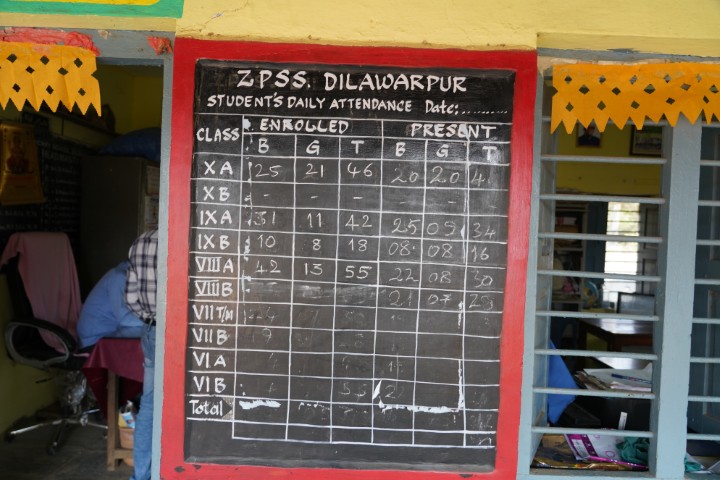 Z.P.S.S. DILAWARPUR
STUDENT'S DAILY ATTENDANCE Date:..........
CLASS ENROLLED PRESENT
B G T B G T
X A 25 21 46 20 20 41
X B - - - - - -
IX A 31 11 42 25 09 34
IX B 10 8 18 08 08 16
VIII A 42 13 55 22 08 30
VIII B 21 07
VII T/M
VII B
VI A
VI B
Total